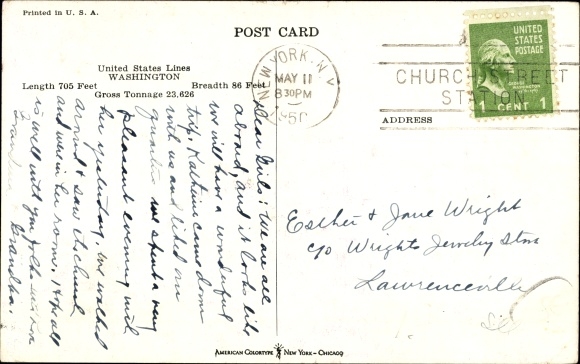 Printed in U. S. A.
POST CARD
United States Lines
WASHINGTON
Length 705 Feet Breadth 86 Feet
Gross Tonnage 23,626
NEW YORK, N.Y.
MAY 11
8 30 PM
1950
CHURCH STREET
STATION
UNITED
STATES
POSTAGE
1 CENT 1
ADDRESS
Dear Girls: We are all
aboard, and it looks like
we will have a wonderful
trip. Kathrine came down
with us and liked our
quarters. We spent a very
pleasant evening with
her yesterday. We walked
around & saw the church
and where her rooms. Hope all
is well with you folks
Grandma Grandpa.
Esther & Jane Wright
c/o Wrights Jewelry Store
Lawrenceville
AMERICAN COLORTYPE NEW YORK - CHICAGO